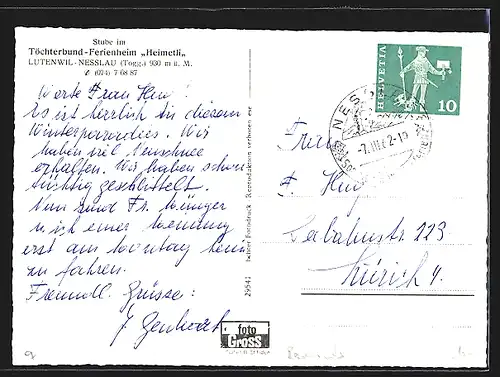 Stube im
Töchterbund-Ferienheim „Heimetli"
LUTENWIL-NESSLAU (Togg.) 930 m ü. M.
✆ (074) 7 68 87
Werte Frau Hug!
Es ist herrlich in diesem
Winterparadies. Wir
haben viel Neuschnee
erhalten. Wir haben schon
tüchtig geschlittelt.
Nun sind Fr.
u. ich einer Meinung
erst am Montag heim
zu fahren.
Freundl. Grüsse:
HELVETIA
10
NESSLAU
-7.III.62-10
Frau
Hug
223
Zürich 4.
29541
foto
GROSS